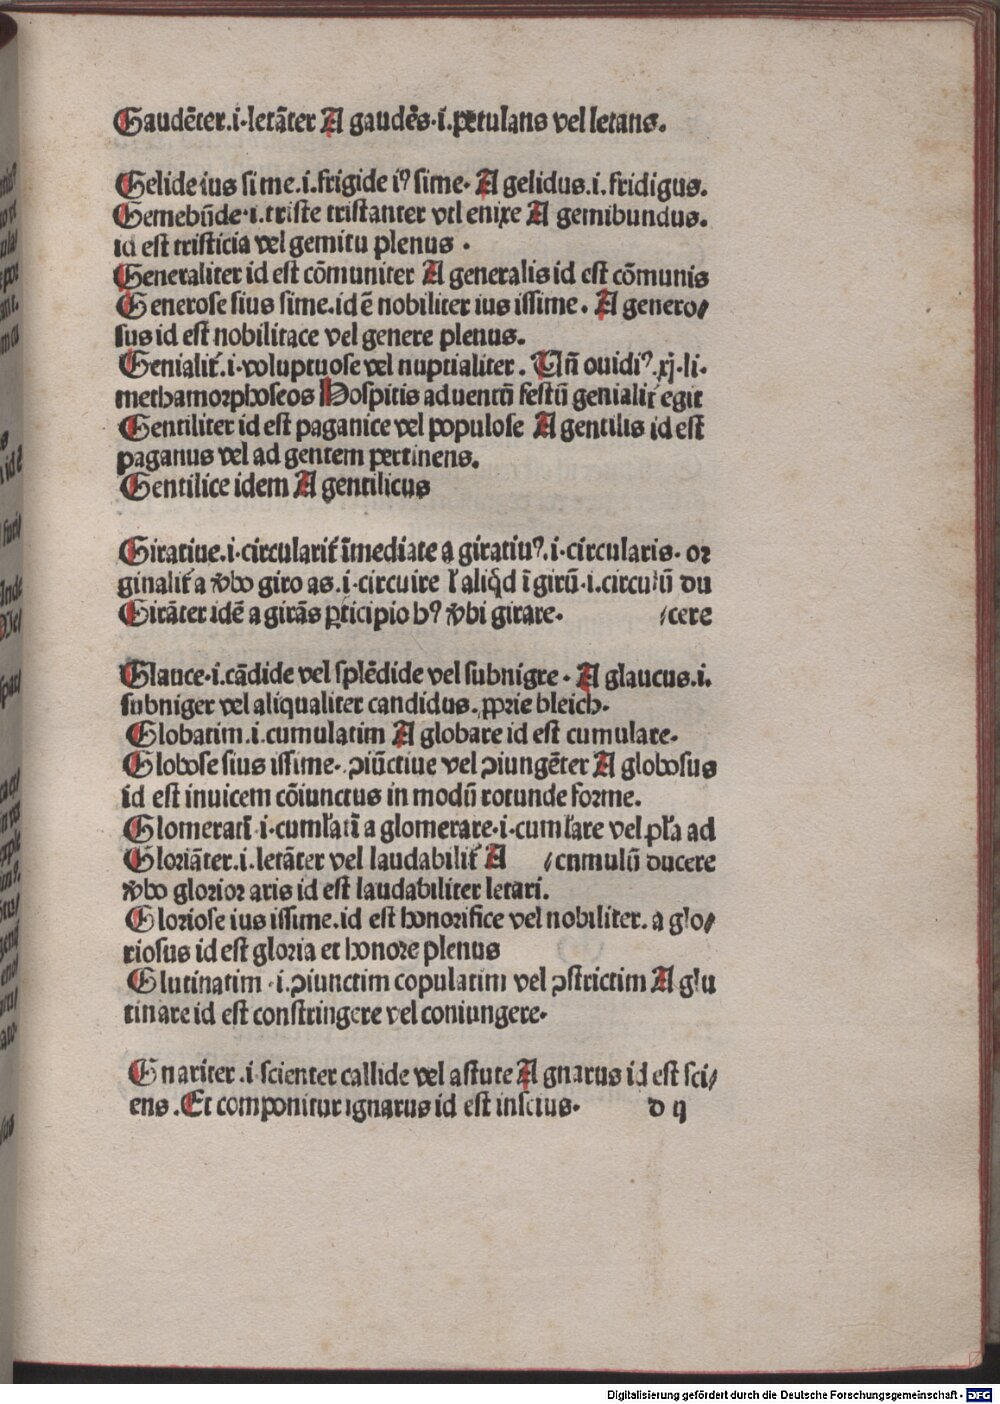 Gaudēter.i.letāter A gaudēs.i.petulans vel letans.
Gelide ius sime.i.frigide iꝰ sime. A gelidus.i.fridigus.
Gemebūde.i.triste tristanter vtl enixe A gemibundus.
id est tristicia vel gemitu plenus .
Generaliter id est cōmuniter A generalis id est cōmunis
Generose sius sime.id ē nobiliter ius issime. A genero/
sus id est nobilitace vel genere plenus.
Genialit̄.i.voluptuose vel nuptialiter. Vn̄ ouidiꝰ.xj.li.
methamorphoseos Hospitis aduentū festū genialit̄ egit
Gentiliter id est paganice vel populose A gentilis id est
paganus vel ad gentem pertinens.
Gentilice idem A gentilicus
Giratiue.i.circularit̄ īmediate a giratiuꝰ.i.circularis. or
ginalit̄ a v̄bo giro as.i.circuire l̄ aliq̄d ī girū.i.circulū du
Girāter idē a girās ꝑticipio hꝰ v̄bi girare. /cere
Glauce.i.cādide vel splēdide vel subnigre. A glaucus.i.
subniger vel aliqualiter candidus. ꝓprie bleich.
Globatim.i.cumulatim A globare id est cumulare.
Globose sius issime. ꝯiūctiue vel ꝯiungēter A globosus
id est inuicem cōiunctus in modū rotunde forme.
Glomeratī.i.cuml̄atī a glomerare.i.cuml̄are vel pl̄a ad
Gloriāter.i.letāter vel laudabilit̄ A /cnmulū ducere
v̄bo glorior aris id est laudabiliter letari.
Gloriose ius issime.id est honorifice vel nobiliter. a glo/
riosus id est gloria et honore plenus
Glutinatim .i.ꝯiunctim copulatim vel ꝯstrictim A glu
tinare id est constringere vel coniungere.
Gnariter.i.scienter callide vel astute A gnarus id est sci/
ens. Et componitur ignarus id est inscius. d ij
Digitalisierung gefördert durch die Deutsche Forschungsgemeinschaft - DFG